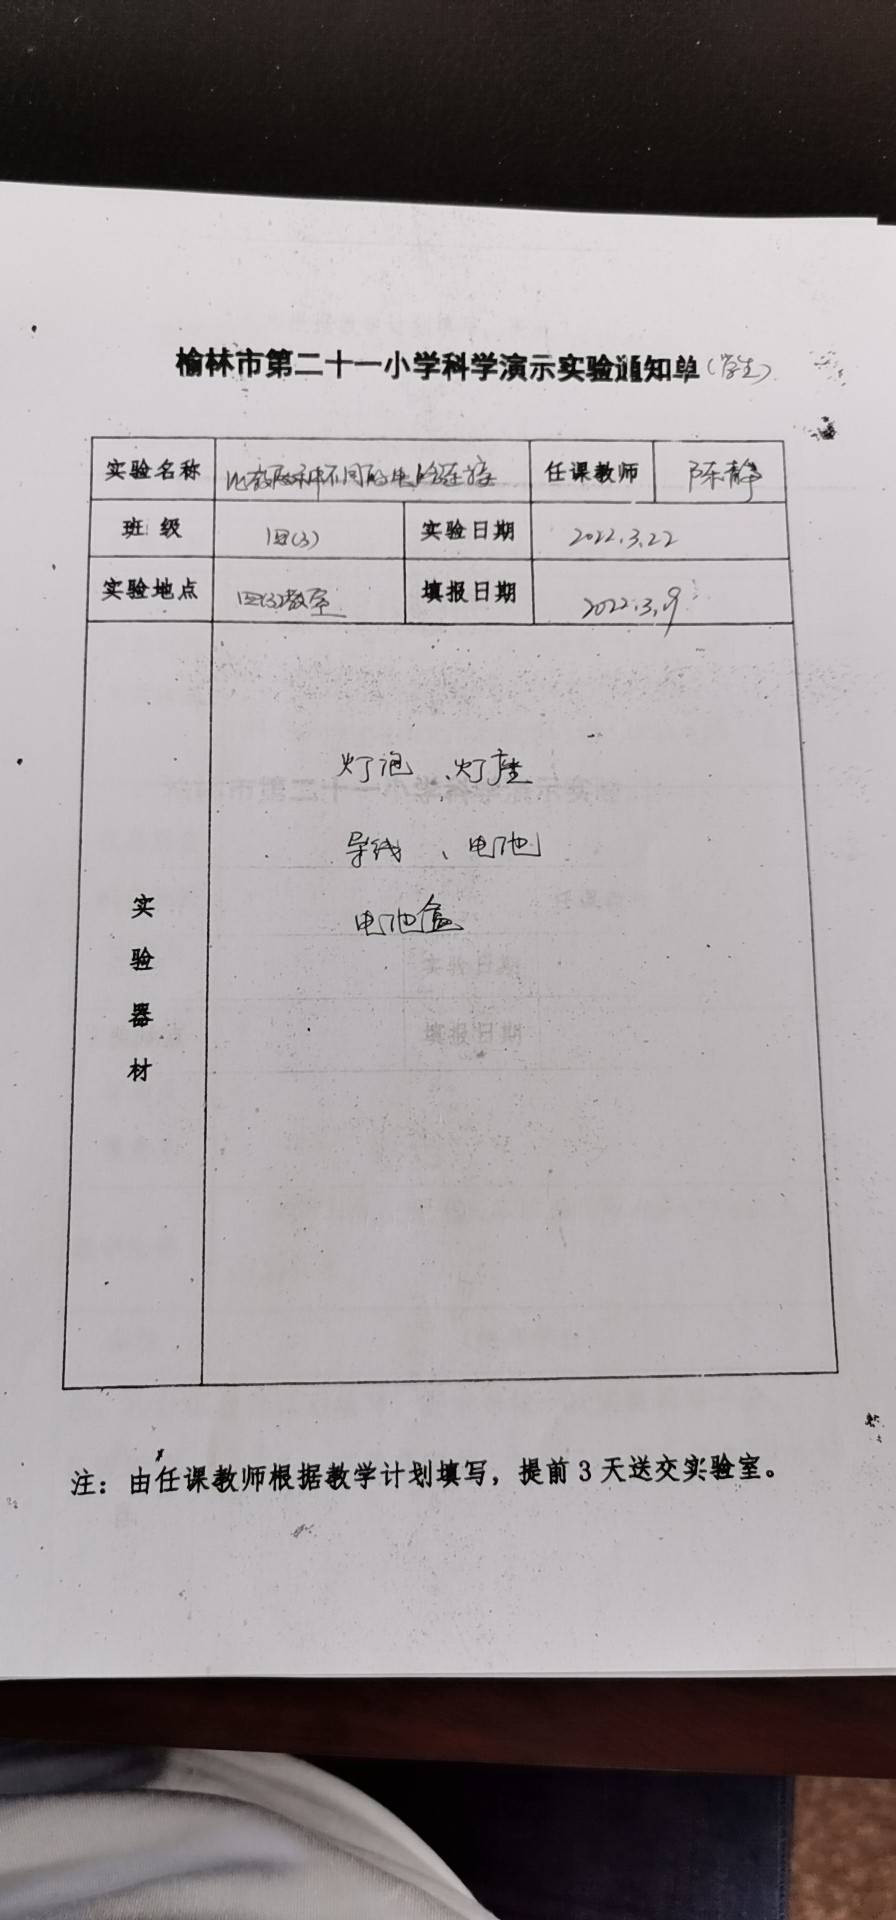 榆林市第二十一小学科学演示实验通知单(学生)
实验名称 比较两种不同的电路连接 任课教师 陈静
班 级 四(3) 实验日期 2022.3.22
实验地点 四(3)教室 填报日期 2022.3.9
实验器材
灯泡、灯座
导线、电池
电池盒
注：由任课教师根据教学计划填写，提前3天送交实验室。